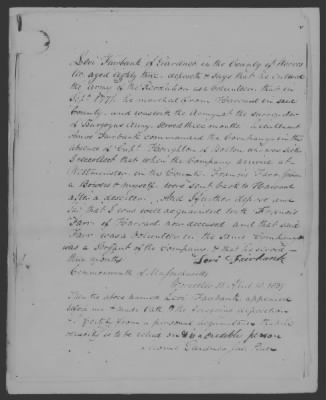 Levi Fairbank of Gardner in the County of Worces
ter aged eighty three deposeth & says that he entered
the army of the Revolution as a volunteer that in
Sept. 1777 he marched from Harvard in said
County and was with the Army at the surrender
of Burgoyns Army. Served three months Lieutenant
Amos Fairbank commanded the Company in the
absence of Capt. of Bolton who was sick
I recollect that when the Company arrived at
Westminster in this County Francis Farr
a Bowers & myself were sent back to Harvard
after a deserter. And I further depose and
say that I was well acquainted with Francis
Farr of Harvard now deceased and that said
Farr was a Volunteer in the same Company
was a Sergent of the Company & that he served
three months
Levi Fairbank
Commonwealth of Massachusetts
Worcester SS. April 1837
Then the above named Levi Fairbank appeared
before me & made oath to the foregoing deposition
I certify from a personal acquaintance that his
veracity is to be relied on & is a credible person
Gardner Jus. Peace